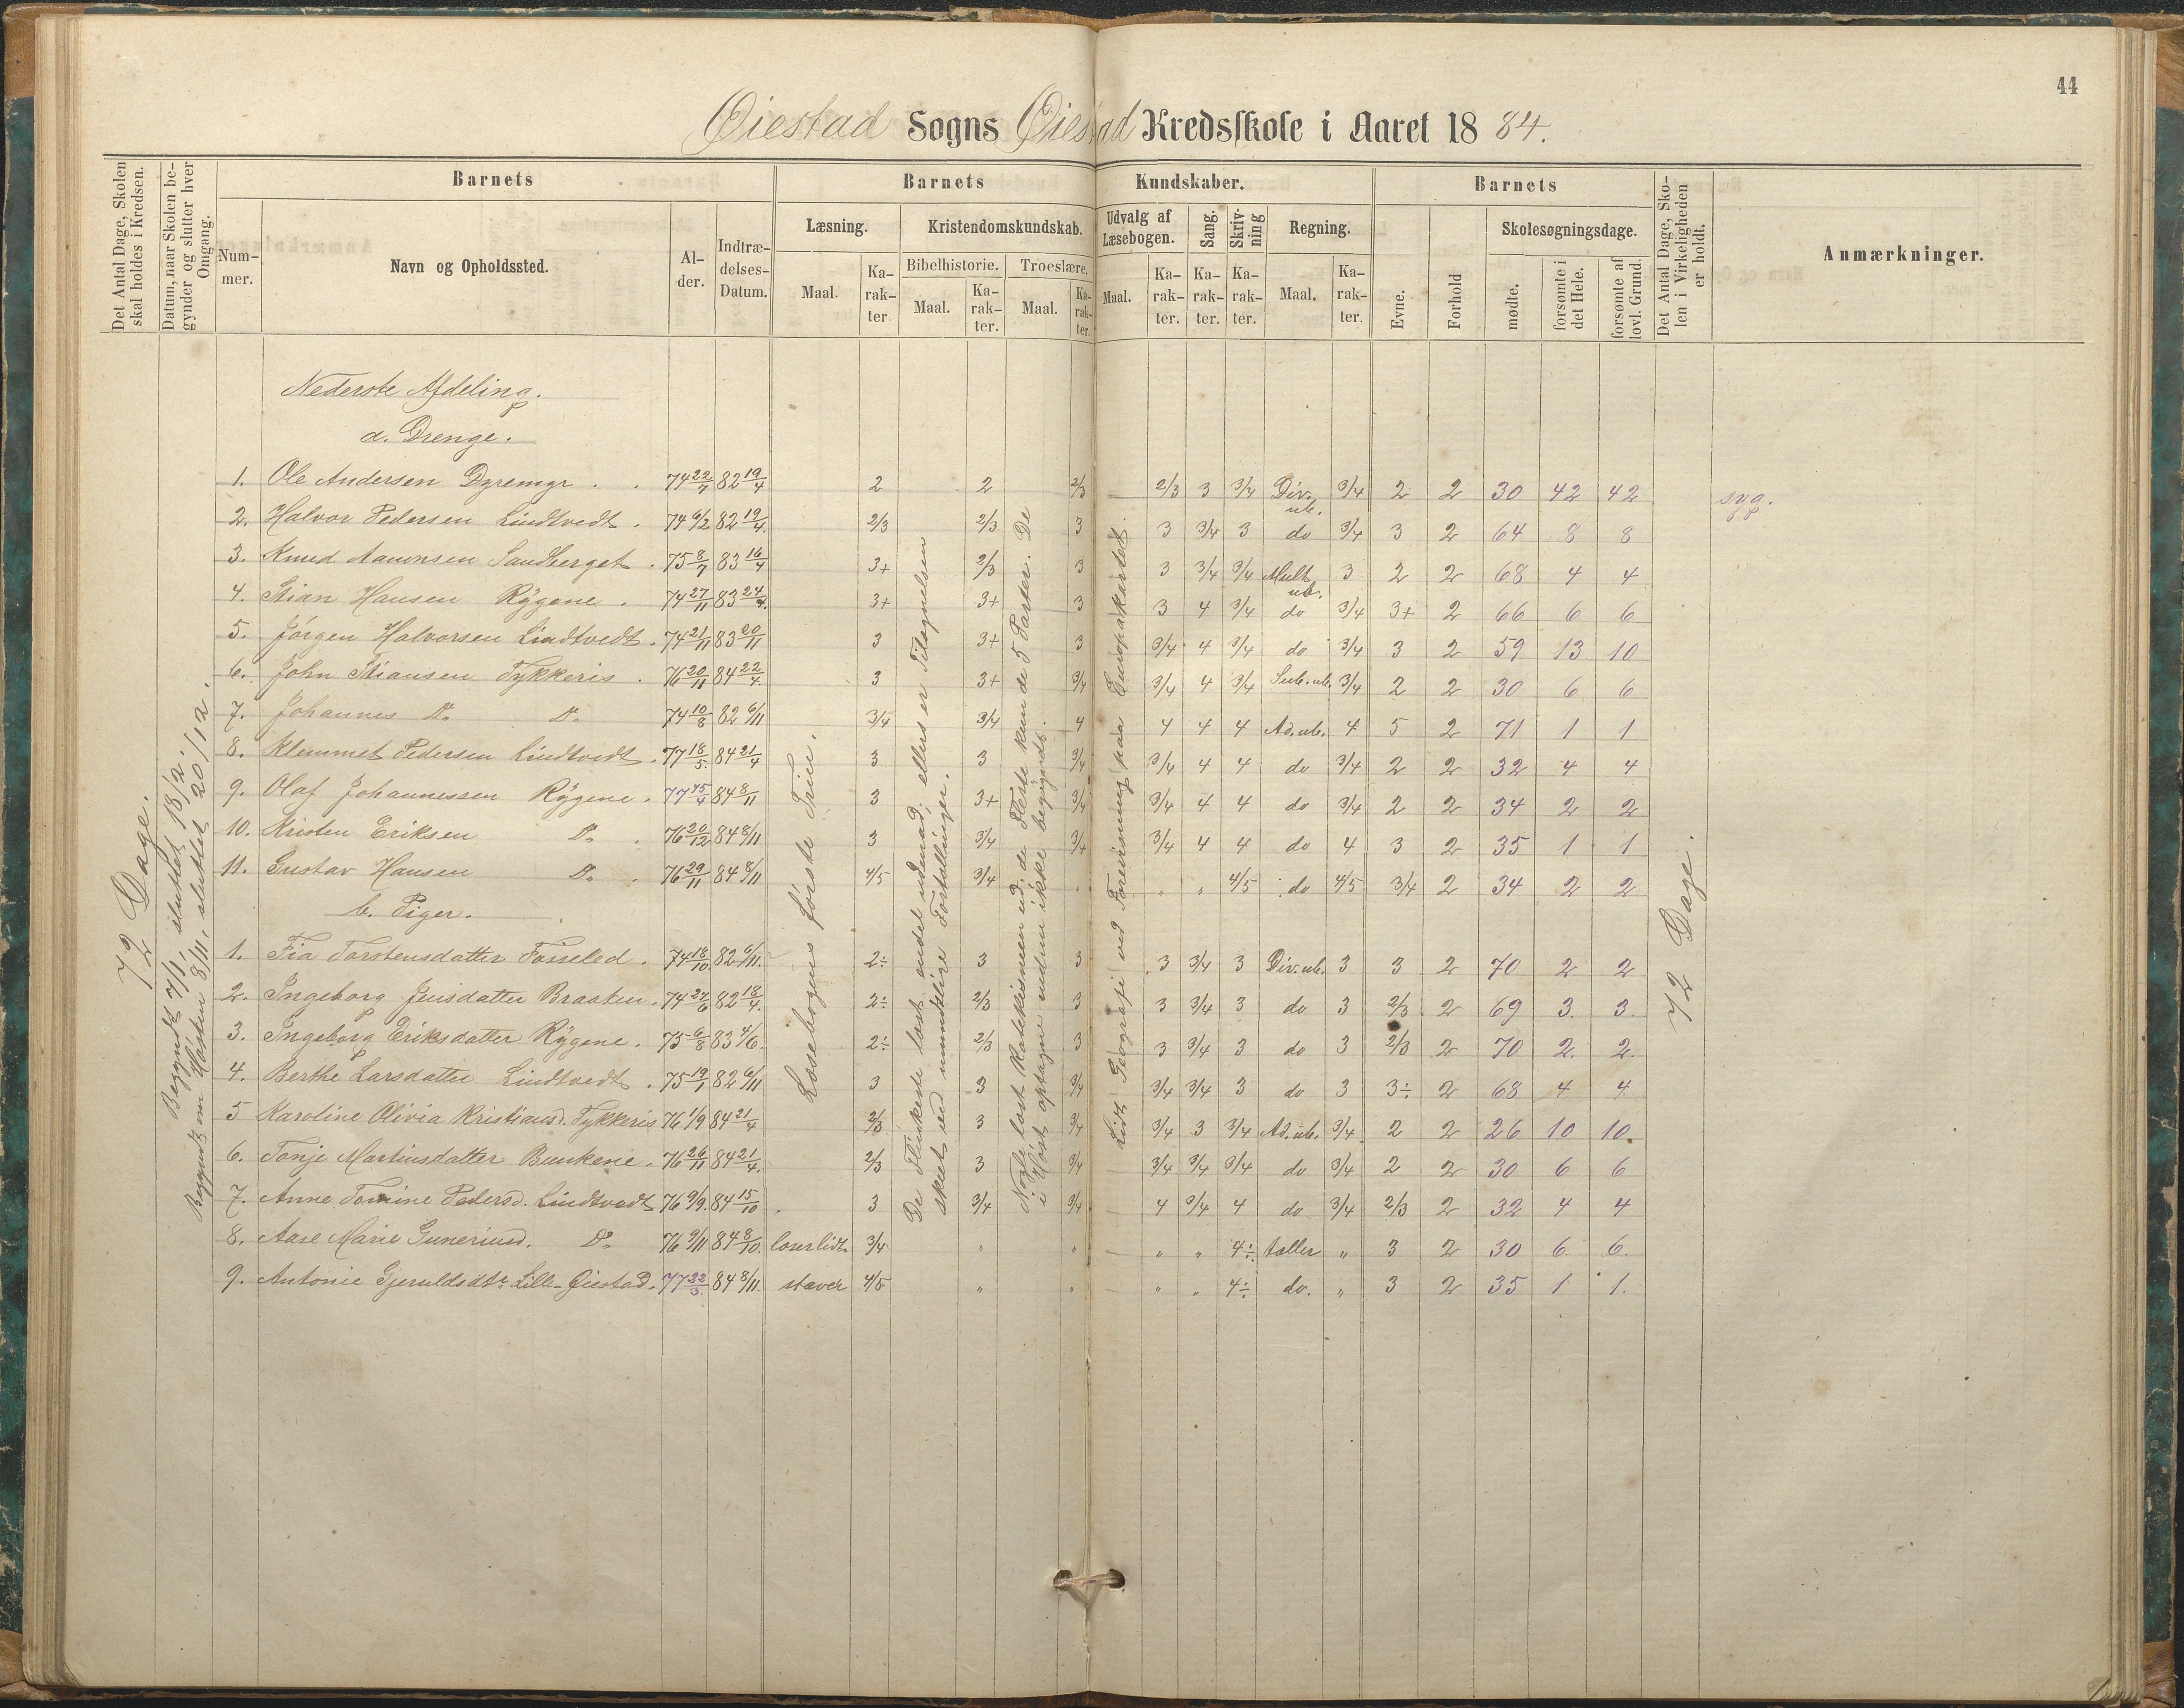 44
Øiestad Sogns Øiestad Kredsskole i Aaret 1884.
Det Antal Dage, Skolen skal holdes i Kredsen.
Datum, naar Skolen begynder og slutter hver Omgang.
Barnets
Nummer.
Navn og Opholdssted.
Alder.
Indtrædelses-Datum.
Barnets Kundskaber.
Læsning.
Maal.
Karakter
Kristendomskundskab.
Bibelhistorie.
Maal.
Karakter.
Troeslære.
Maal.
Karakter.
Udvalg af Læsebogen.
Maal.
Karakter.
Sang.
Karakter.
Skrivning
Karakter.
Regning.
Maal.
Karakter.
Barnets
Evne.
Forhold
Skolesøgningsdage.
mødte.
forsømte i det Hele.
forsømte af lovl. Grund.
Det Antal Dage, Skolen i Virkeligheden er holdt.
Anmærkninger.
72 Dage.
Begyndt 7/1, sluttet 18/2.
Begyndt om Høsten 8/11, sluttet 20/12.
Læsebogens første Trin.
De Flinkeste læst endel udenad; ellers er Tilegnelsen
skeet ved mundtlige Fortællinger.
Nogle læst Katekismen ud; de Fleste kun de 5 Parter. De
i Høst optagne endnu ikke begyndt.
Lidt Geografi ved Forevisning paa Europakartet.
72 Dage.
Nederste Afdeling.
a. Drenge.
1. Ole Andersen Dyremyr . . 74 22/7 82 19/4 2 2 2/3 2/3 3 3/4 Div. ub. 3/4 2 2 30 42 42 syg.
2. Halvor Pedersen Lindtvedt . 74 6/2 82 19/4 2/3 2/3 3 3 3/4 3 do 3/4 3 2 64 8 8
3. Knud Aanonsen Sandberget . 75 8/7 83 16/4 3+ 2/3 3 3 3/4 3/4 Mult. ub. 3 2 2 68 4 4
4. Stian Hansen Rygene . 74 27/11 83 24/4 3+ 3+ 3 3 4 3/4 do 3/4 3+ 2 66 6 6
5. Jørgen Halvorsen Lindtvedt . 74 21/11 83 20/11 3 3+ 3 3/4 4 3/4 do 3/4 3 2 59 13 10
6. John Stiansen Tykkeris . 76 20/11 84 22/4 3 3+ 3/4 3/4 4 3/4 Sub. ub. 3/4 2 2 30 6 6
7. Johannes Do Do 74 10/8 82 6/11 3/4 3/4 4 4 4 4 Ad. ub. 4 5 2 71 1 1
8. Klemmet Pedersen Lindtvedt . 77 18/5 84 21/4 3 3 3/4 3/4 4 4 do 3/4 2 2 32 4 4
9. Olaf Johannessen Rygene . 77 15/4 84 8/11 3 3+ 3/4 3/4 4 4 do 3/4 2 2 34 2 2
10. Kristen Eriksen Do . 76 20/12 84 8/11 3 3/4 3/4 3/4 4 4 do 4 3 2 35 1 1
11. Gustav Hansen Do . 76 29/11 84 8/11 4/5 3/4 " " " 4/5 do 4/5 3/4 2 34 2 2
b. Piger.
1. Fia Torstensdatter Fosseled . 74 18/10 82 6/11 2÷ 3 3 3 3/4 3 Div. ub. 3 3 2 70 2 2
2. Ingeborg Jensdatter Braaten . 74 24/6 82 18/4 2÷ 2/3 3 3 3/4 3 do 3 2/3 2 69 3. 3.
3. Ingeborg Eriksdatter Rygene . 75 6/8 83 4/6 2÷ 2/3 3 3 3/4 3 do 3 2/3 2 70 2. 2.
4. Berthe Larsdatter Lindtvedt . 75 19/1 82 6/11 3 3 3/4 3/4 3/4 3 do 3 3÷ 2 68 4 4
5 Karoline Olivia Kristiansd. Tykkeris 76 1/9 84 21/4 2/3 3 3/4 3/4 3 3/4 Ad. ub. 3/4 2 2 26 10 10.
6. Tonje Martinsdatter Bunkene . 76 26/11 84 21/4 2/3 3 3/4 3/4 3/4 3/4 do 3/4 2 2 30 6 6
7. Anne Tomine Pedersd. Lindtvedt 76 9/9 84 15/10 3 3/4 3/4 4 3/4 4 do 3/4 2/3 2 32 4 4
8. Aase Marie Guneriusd. Do 76 9/11 84 8/10 læser lidt 3/4 " " " " 4÷ tæller " 3 2 30 6 6.
9. Antonie Gjeruldsdtr Lille-Øiestad . 77 22/3 84 8/11 staver 4/5 " " " " 4÷ do. " 3 2 35 1 1.